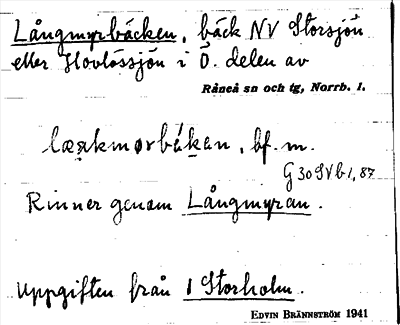 Långmyrbäcken, bäck NV Storsjön
eller Hovlössjön i Ö. delen av
Råneå sn och tg, Norrb. l.
bf. m.
G 30 SV b 1, 87
Rinner genom Långmyran.
Uppgiften från 1 Storholm.
EDVIN BRÄNNSTRÖM 1941